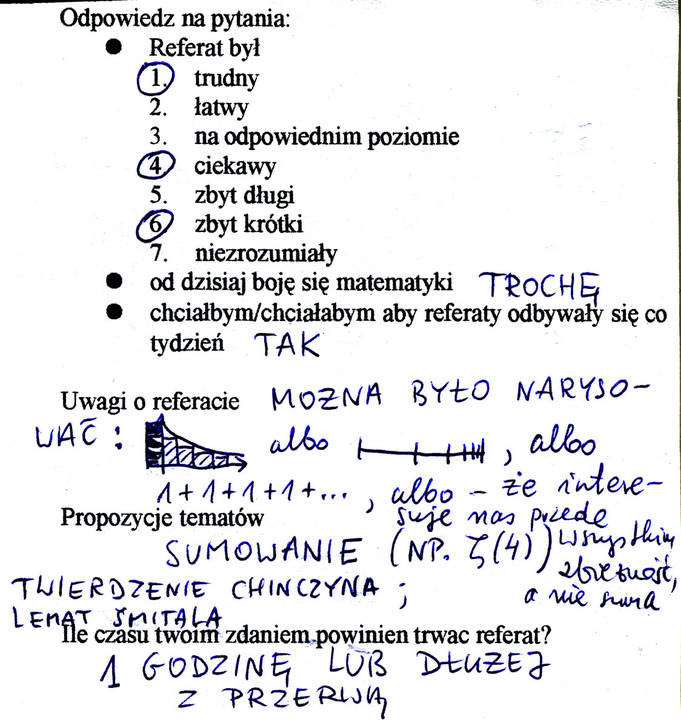 Odpowiedz na pytania:
● Referat był
1. trudny
2. łatwy
3. na odpowiednim poziomie
4. ciekawy
5. zbyt długi
6. zbyt krótki
7. niezrozumiały
● od dzisiaj boję się matematyki TROCHĘ
● chciałbym/chciałabym aby referaty odbywały się co
tydzień TAK
Uwagi o referacie MOŻNA BYŁO NARYSO-
WAĆ: albo , albo
1+1+1+1+..., albo - że intere-
suje nas przede
wszystkim
zbieżność,
a nie suma
Propozycje tematów
SUMOWANIE (NP. ζ(4))
TWIERDZENIE CHINCZYNA ;
LEMAT ŚMITALA
Ile czasu twoim zdaniem powinien trwac referat?
1 GODZINĘ LUB DŁUŻEJ
Z PRZERWĄ